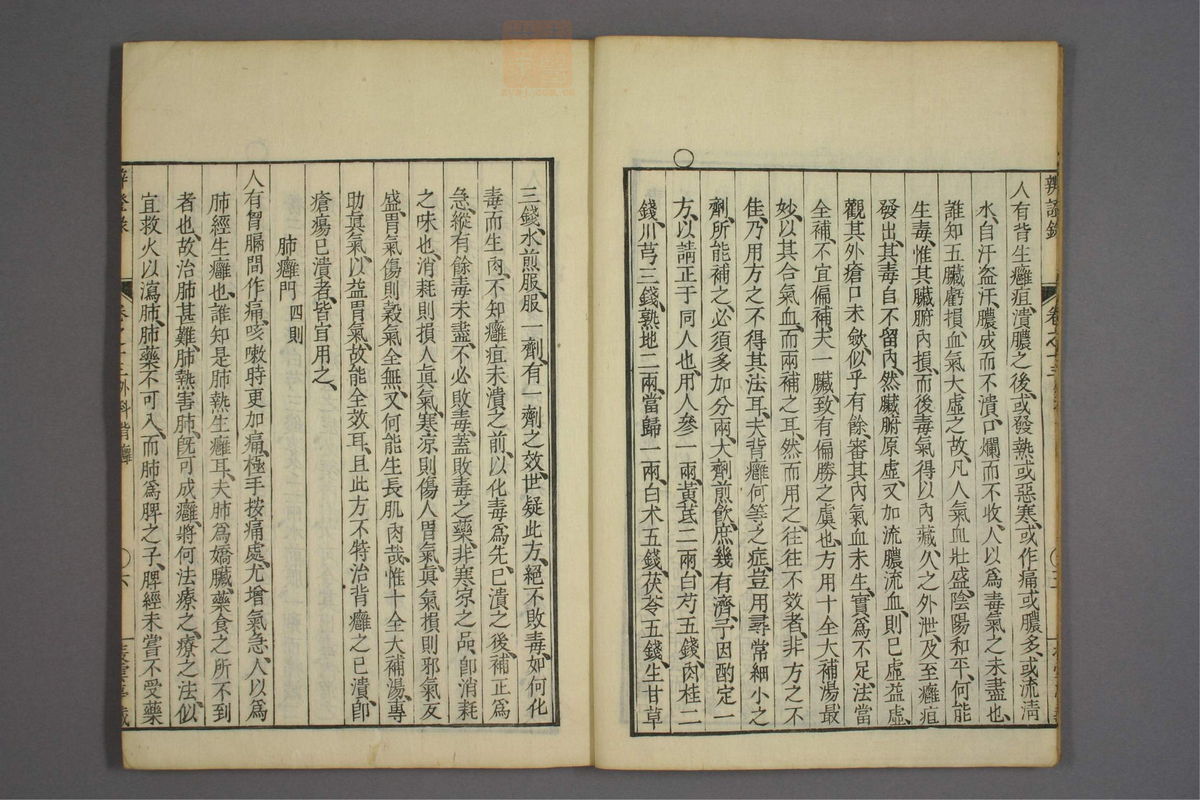 人有背生癰疽潰膿之後、或發熱或惡寒、或作痛或膿多、或流清
水、自汗盜汗、膿成而不潰、口爛而不收、人以爲毒氣之未盡也、
誰知五臟虧損血氣大虛之故、凡人氣血壯盛、陰陽和平、何能
生毒、惟其臟腑內損、而後毒氣得以內藏、久之外泄、及至癰疽
發出、其毒自不留內、然臟腑原虛、又加流膿流血、則已虛益虛、
觀其外瘡口未歛、似乎有餘、審其內氣血未生、實爲不足、法當
全補、不宜偏補、夫一臟致有偏勝之虞也、方用十全大補湯最
妙、以其合氣血、而兩補之耳、然而用之往往不效者、非方之不
佳、乃用方之不得其法耳、夫背癰何等之症、豈用尋常細小之
劑、所能補之、必須多加分兩、大劑煎飲、庶幾有濟、予因酌定一
方、以請正于同人也、用人參一兩、黃茋二兩、白芍五錢、肉桂二
錢、川芎三錢、熟地二兩、當歸一兩、白术五錢、茯苓五錢、生甘草
三錢、水煎服、服一劑、有一劑之效、世疑此方、絕不敗毒、如何化
毒而生肉、不知癰疽未潰之前、以化毒爲先、已潰之後、補正爲
急、縱有餘毒未盡、不必敗毒、蓋敗毒之藥、非寒凉之品、卽消耗
之味也、消耗則損人眞氣、寒凉則傷人胃氣、眞氣損則邪氣反
盛、胃氣傷則榖氣全無、又何能生長肌肉哉、惟十全大補湯、專
助眞氣、以益胃氣、故能全效耳、且此方不特治背癰之已潰、卽
瘡瘍已潰者、皆宜用之、
肺癰門 四則
人有胷膈間作痛、咳嗽時更加痛極、手按痛處、尤增氣急、人以爲
肺經生癰也、誰知是肺熱生癰耳、夫肺爲嬌臟、藥食之所不到
者也、故治肺甚難、肺熱害肺、旣可成癰、將何法療之、療之法、似
宜救火以瀉肺、肺藥不可入、而肺爲脾之子、脾經未嘗不受藥